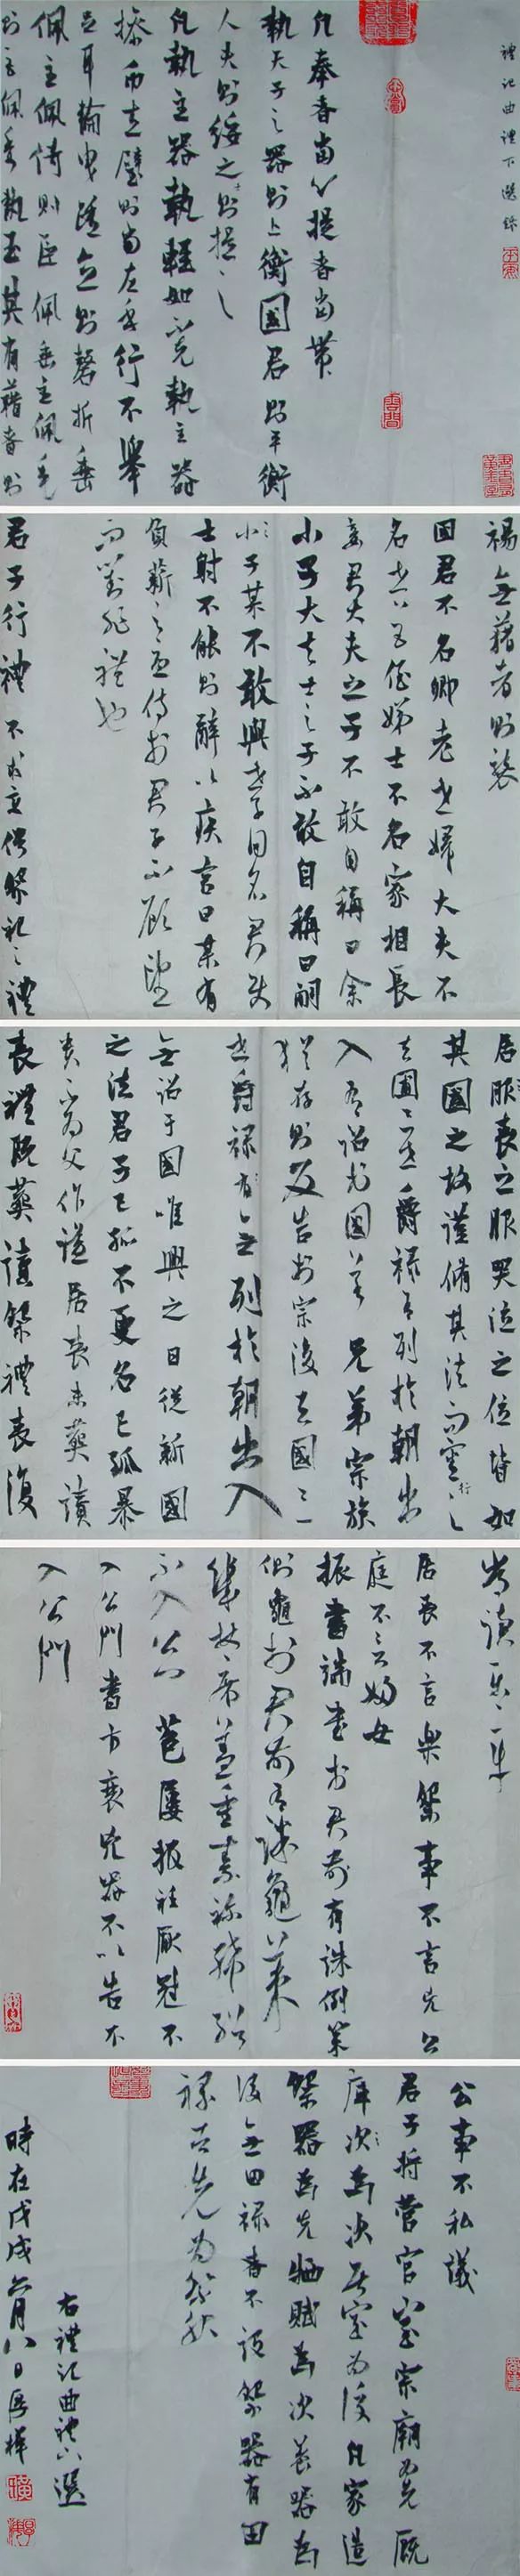 禮記曲禮下選錄
凡奉者當心提者當帶
執天子之器則上衡國君則平衡
大夫則綏之士則提之
凡執主器執輕如不克執主器
操幣圭璧則尚左手行不舉
足車輪曳踵立則磬折垂
佩主佩倚則臣佩垂主佩垂
則臣佩委執玉其有藉者則
裼無藉者則襲
國君不名卿老世婦大夫不
名世臣姪娣士不名家相長
妾君大夫之子不敢自稱曰余
小子大夫士之子不敢自稱曰嗣
子某不敢與世子同名君使
士射不能則辭以疾言曰某有
負薪之憂侍於君子不顧望
而對非禮也
君子行禮不求變俗祭祀之禮
居喪之服哭泣之位皆如
其國之故謹脩其法而審行之
去國三世爵祿有列於朝出
入有詔於國若兄弟宗族
猶存則反告於宗後去國三
世爵祿無列於朝出入
無詔于國唯興之日從新國
之法君子已孤不更名已孤暴
貴不為父作謚居喪未葬讀
喪禮既葬讀祭禮喪復
常讀樂章
居喪不言樂祭事不言凶公
庭不言婦女
振書端書於君前有誅倒筴
側龜於君前有誅龜筴
几杖席蓋重素袗絺綌
不入公門苞屨扱衽厭冠不
入公門書方衰凶器不以告不
入公門
公事不私議
君子將營宮室宗廟為先廄
庫為次居室為後凡家造
祭器為先犧賦為次養器為
後無田祿者不設祭器有田
祿者先為祭服
右禮記曲禮下選
時在戊戌六月八日